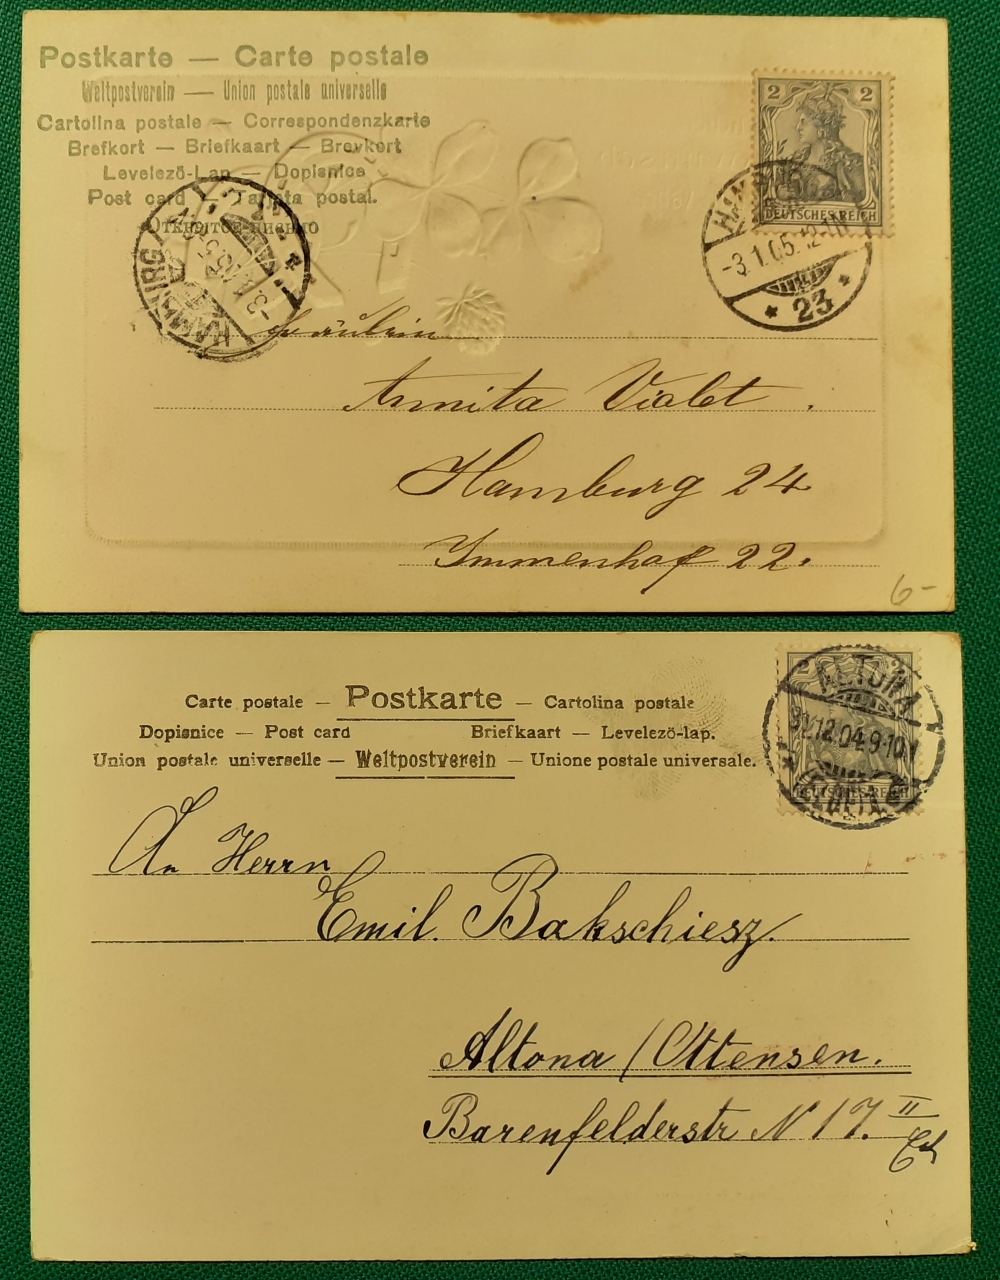 Postkarte — Carte postale
Weltpostverein — Union postale universelle
Cartolina postale — Correspondenzkarte
Brefkort — Briefkaart — Brevkort
Levelező-Lap — Dopisnice
Post card — Tarjeta postal.
Открытое письмо
2 2
DEUTSCHES REICH
HAMBURG
-3.1.05.12-1N
* 23 *
HAMBURG
Fräulein
Annita Violet.
Hamburg 24
Immenhof 22.
6-
Carte postale — Postkarte — Cartolina postale
Dopisnice — Post card Briefkaart — Levelező-lap.
Union postale universelle — Weltpostverein — Unione postale universale.
2 2
DEUTSCHES REICH
ALTONA
31.12.04.9-10
An Herrn
Emil. Bakschiesz.
Altona / Ottensen.
Barenfelderstr N 17. II